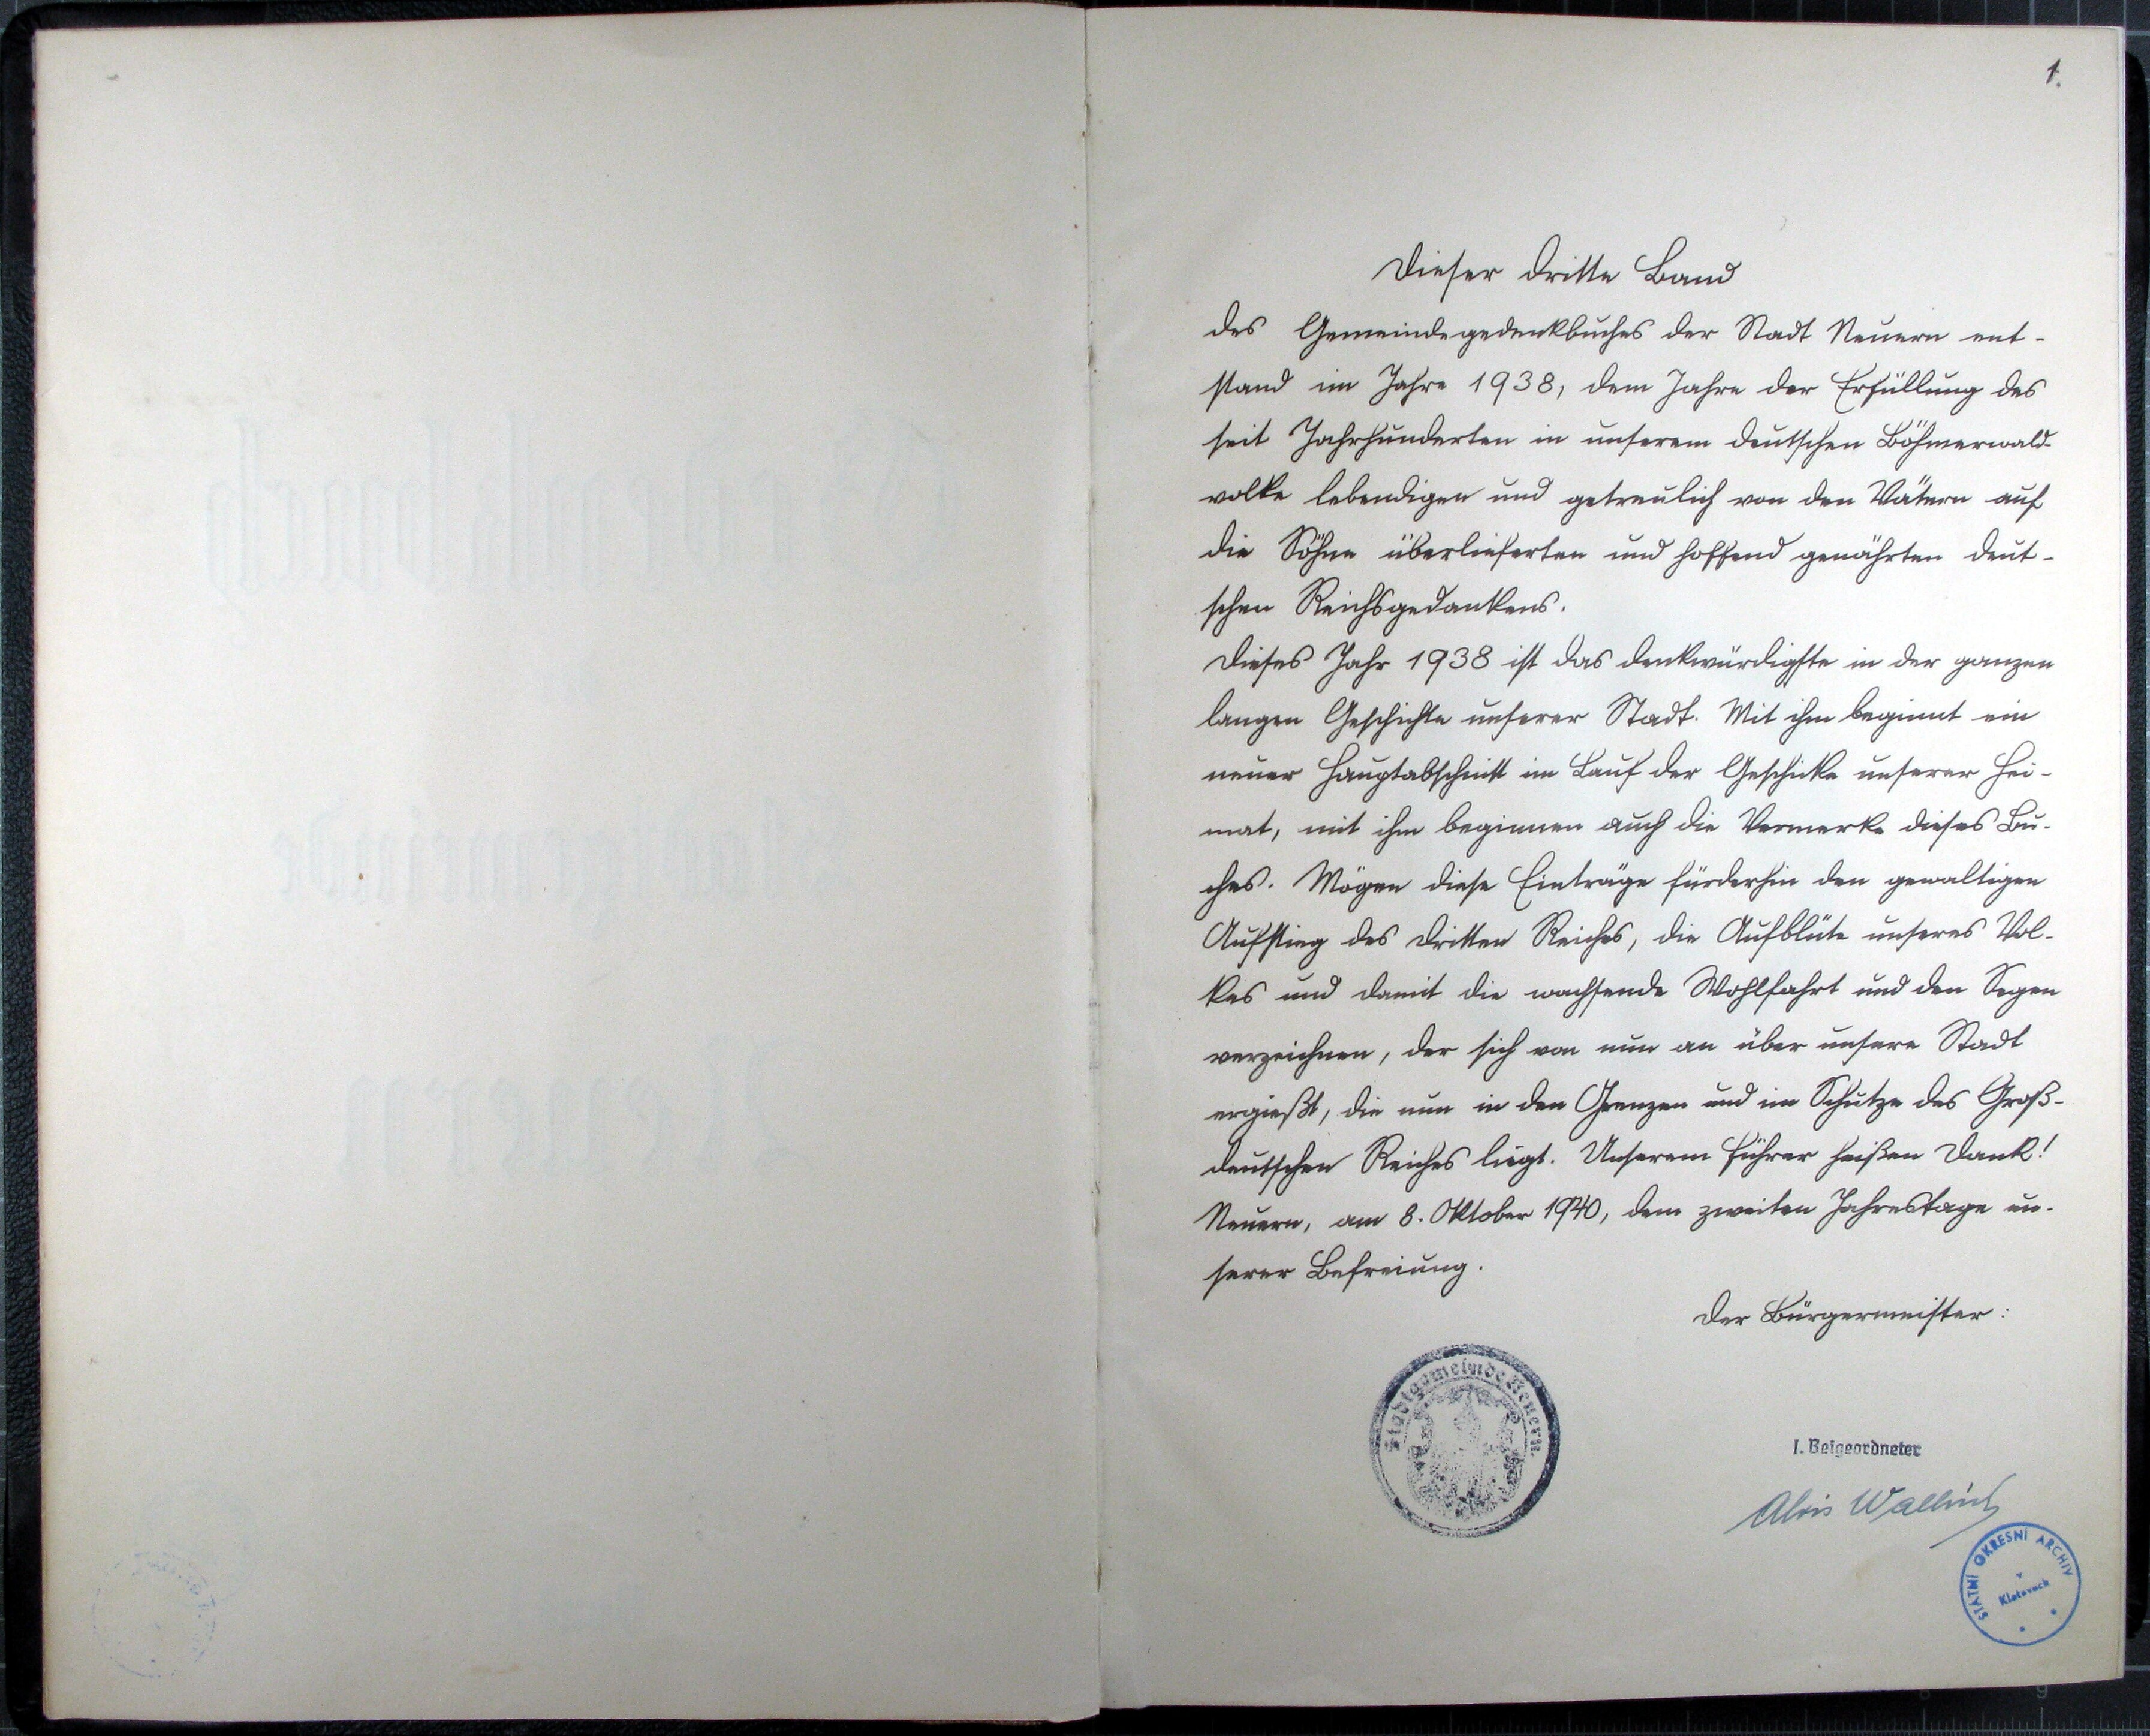 1.
Dieser dritte Band
des Gemeindegedenkbuches der Stadt Neuern ent-
stand im Jahre 1938, dem Jahre der Erfüllung des
seit Jahrhunderten in unserem deutschen Böhmerwald-
volke lebendigen und getreulich von den Vätern auf
die Söhne überlieferten und hoffend genährten deut-
schen Reichsgedankens.
Dieses Jahr 1938 ist das denkwürdigste in der ganzen
langen Geschichte unserer Stadt. Mit ihm beginnt ein
neuer Hauptabschnitt im Lauf der Geschicke unserer Hei-
mat, mit ihm beginnen auch die Vermerke dieses Bu-
ches. Mögen diese Einträge fürderhin den gewaltigen
Aufstieg des dritten Reiches, die Aufblüte unseres Vol-
kes und damit die wachsende Wohlfahrt und den Segen
verzeichnen, der sich von nun an über unsere Stadt
ergießt, die nun in den Grenzen und im Schutze des Groß-
deutschen Reiches liegt. Unserem Führer heißen Dank!
Neuern, am 8. Oktober 1940, dem zweiten Jahrestage un-
serer Befreiung.
Der Bürgermeister:
Stadtgemeinde Neuern.
I. Beigeordneter
Alois
STÁTNÍ OKRESNÍ ARCHIV
v
Klatovech